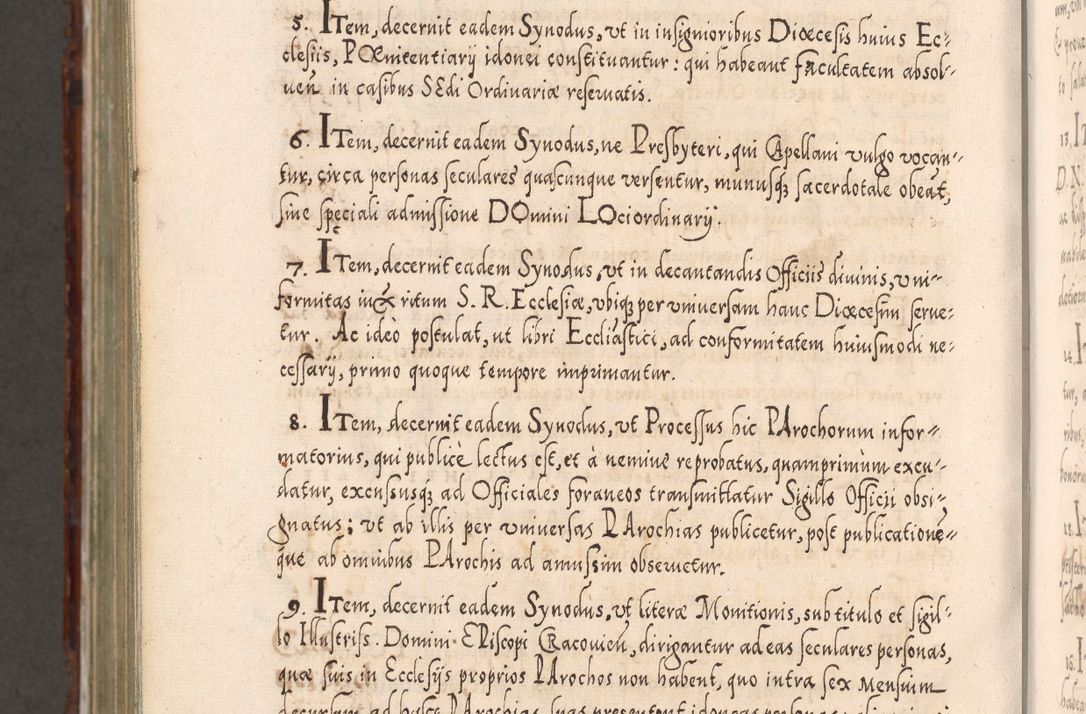 5. ITem, decernit eadem Synodus, vt in insignioribus Diœcesis huius Ec=
clesiis, Pœnitentiarij idonei constituantur: qui habeant facultatem absol=
uen̄ in casibus SEdi Ordinariæ reseruatis.
6. ITem, decernit eadem Synodus, ne Presbyteri, qui CApellani vulgo vocan=
tur, circa personas seculares quascunque versentur, munusq; sacerdotale obeāt,
sine speciali admissione DOmini LOciordinarij.
7. ITem, decernit eadem Synodus, vt in decantandis Officiis diuinis, vni=
formitas iux ritum S. R. Ecclesiæ, vbiq; per vniuersam hanc Diœcesim serue=
tur. Ac ideò postulat, ut libri Eccliastici, ad conformitatem huiusmodi ne=
cessarij, primo quoque tempore imprimantur.
8. ITem, decernit eadem Synodus, vt Processus hic PArochorum infor=
matorius, qui publicè lectus est, et à nemine reprobatus, quamprimùm excu=
datur, excussusq; ad Officiales foraneos transmittatur Sigillo Officij obsi=
gnatus; vt ab illis per vniuersas PArochias publicetur, post publicationē=
que ab omnibus PArochis ad amussim obseruetur.
9. ITem, decernit eadem Synodus, vt literæ Monitionis, sub titulo et sigil=
lo Illustriss. Domini EPiscopi CRacouien̄, dirigantur ad eas seculares personas,
quæ suis in Ecclesijs proprios PArochos non habent, quo intra sex Mensium